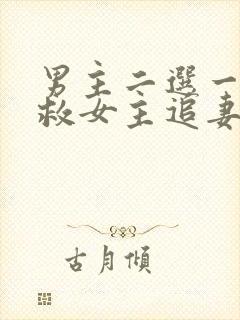 男主二選一
救女主追妻
古月傾